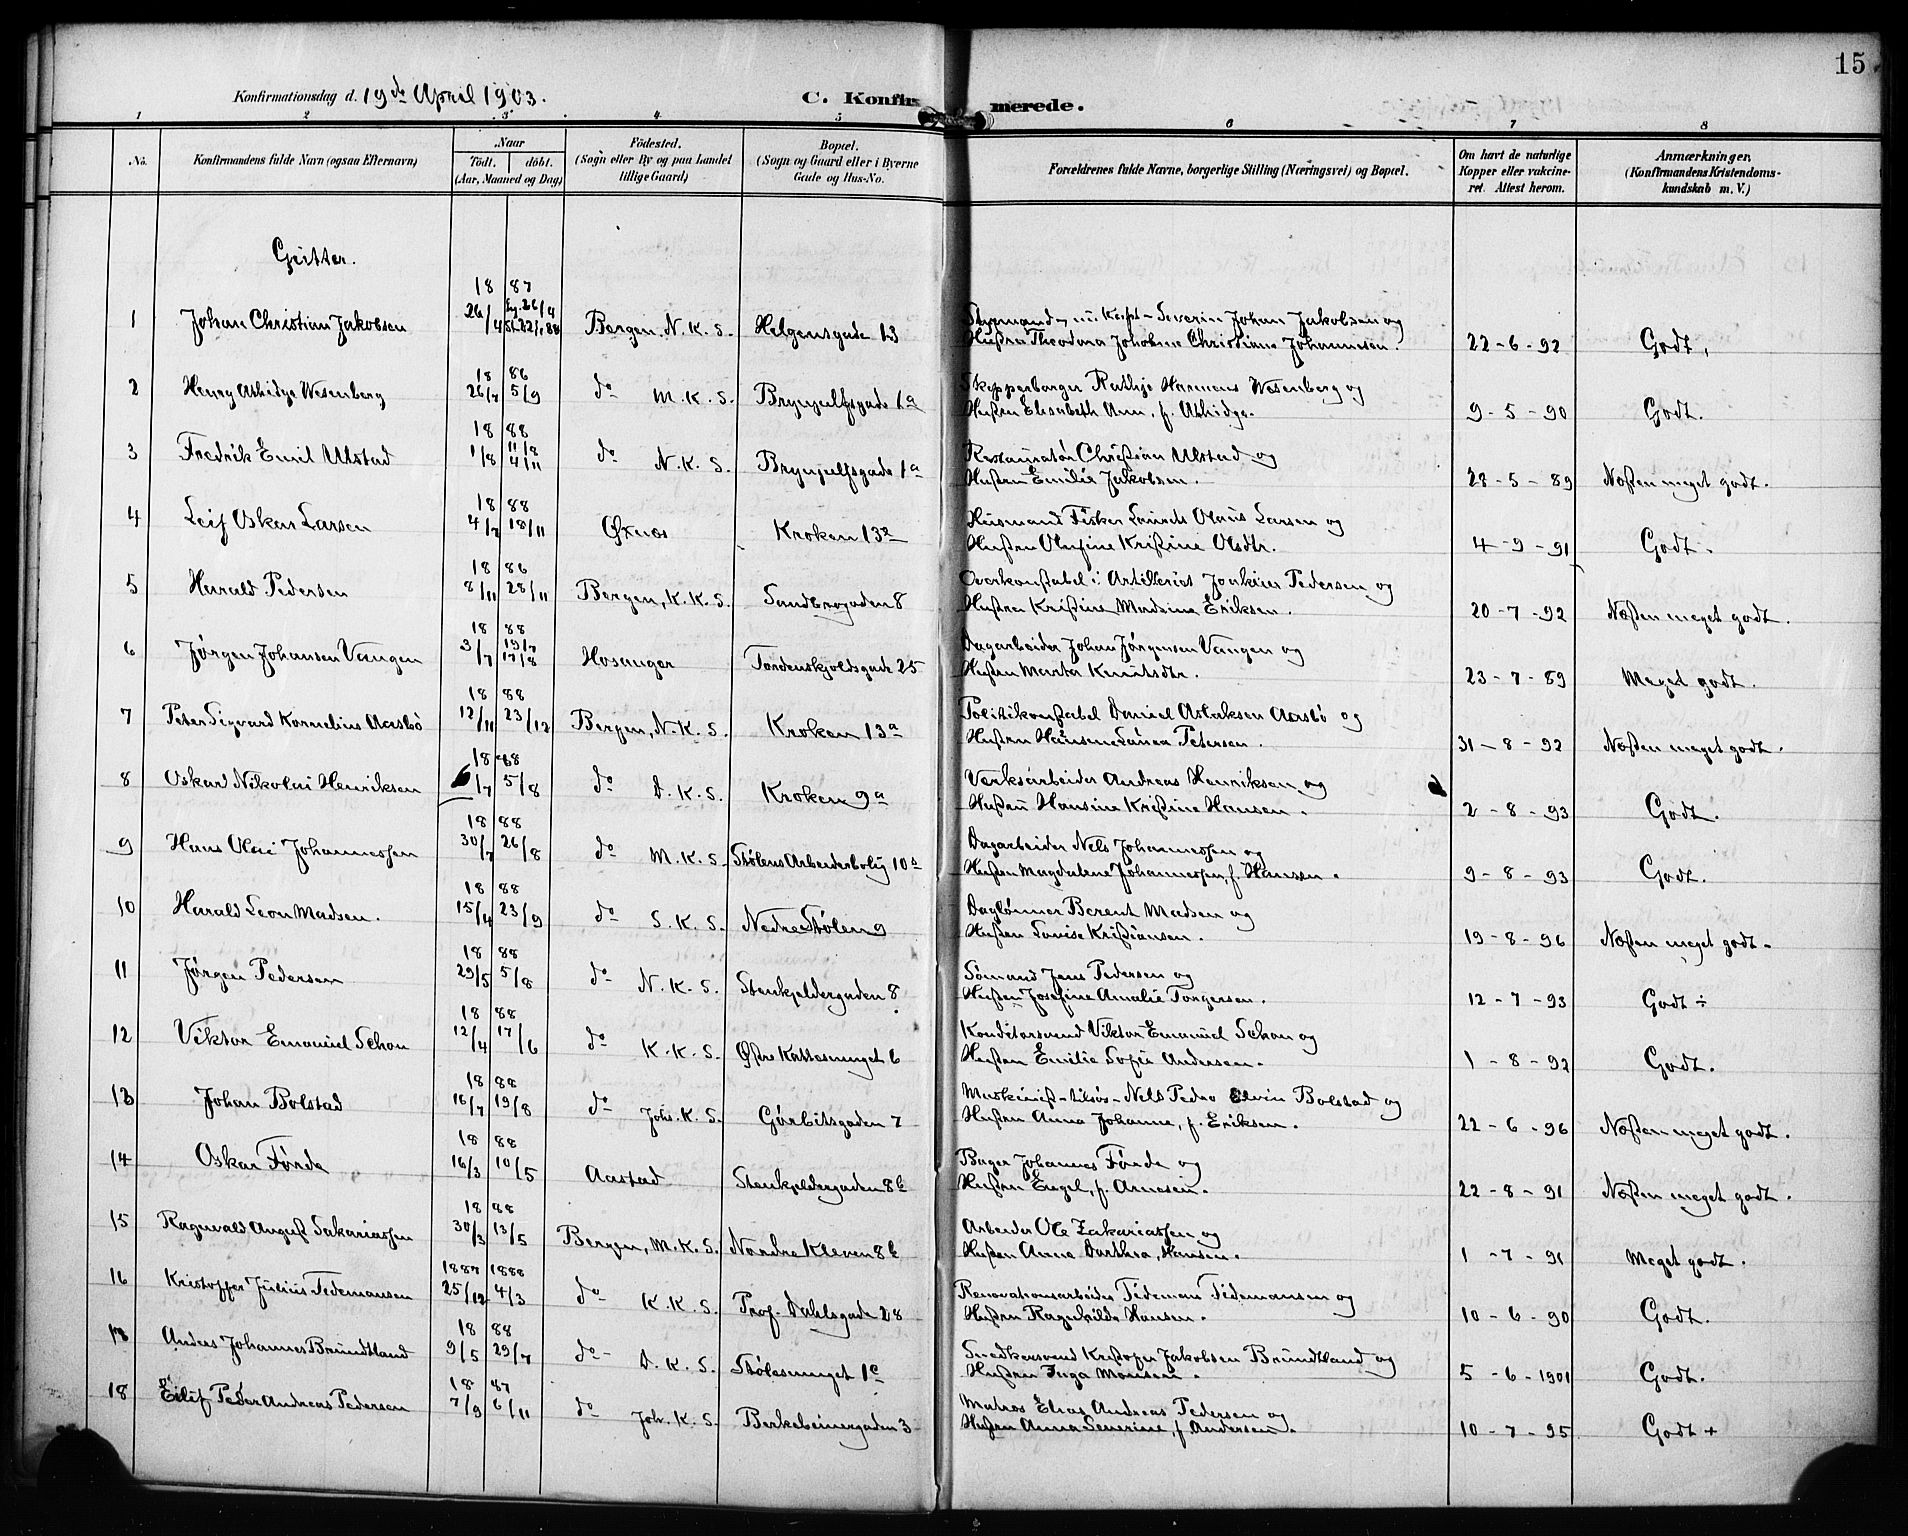 15
Konfirmationsdag d. 19de April 1903.
C. Konfirmerede.
1 2 3 4 5 6 7 8
No.
Konfirmandens fulde Navn (ogsaa Efternavn)
Naar
Födt. döbt.
(Aar, Maaned og Dag)
Födested.
(Sogn eller By og paa Landet tillige Gaard)
Bopæl.
(Sogn og Gaard eller i Byerne Gade og Hus-No.
Forældrenes fulde Navne, borgerlige Stilling (Næringsvei) og Bopæl.
Om havt de naturlige Kopper eller vakcineret. Attest herom.
Anmærkninger.
(Konfirmandens Kristendomskundskab m. V.)
Gutter.
18 87
1 Johan Christian Jakobsen 26/4 26/4 22/1 88 Bergen, N. K. S. Helgensgade 13 Styrmand Severin Johan Jakobsen og
Hustru Theodora Jakobine Christiane Johannesen. 22-6-92 Godt.
18 86
2 Henry Athidge Wesenberg 26/7 5/9 do M. K. S. Brynjulfsgade 1a Skypperborger Rathje Harmens Wesenberg og
Hustru Elisabeth Ann, f. Athidge. 9-5-90 Godt.
18 88
3 Fredrik Emil Ulstad 1/8 11/8 4/11 do N. K. S. Brynjulfsgade 1a Restauratør Christian Ulstad og
Hustru Emilie Jakobsen. 28-5-89 Næsten meget godt.
18 88
4 Leif Oskar Larsen 4/7 18/11 Øxnes Kroken 13a Husmand Fisker Laurits Olaus Larsen og
Hustru Olufine Kristine Olsdtr. 4-9-91 Godt
18 86
5 Harald Pedersen 8/11 28/11 Bergen, K. K. S. Sandbrogaden 8 Overkonstabel i Artilleriet Joakim Pedersen og
Hustru Kristine Madsina Eriksen. 20-7-92 Næsten meget godt.
18 88
6 Jørgen Johansen Vangen 3/7 19/7 17/8 Hosanger Tordenskjoldsgade 25 Dagarbeider Johan Jørgensen Vangen og
Hustru Marta Knutsdtr. 23-7-89 Meget godt.
18 88
7 Peter Sigvard Kornelius Aasbø 12/11 23/12 Bergen, N. K. S. Kroken 13a Politikonstabel Daniel Aslaksen Aasbø og
Hustru Hansine Laura Petersen. 31-8-92 Næsten meget godt.
18 88
8 Oskar Nikolai Henriksen 6/7 5/8 do D. K. S. Kroken 9a Verksarbeider Andreas Henriksen og
Hustru Hansine Kristine Hansen. 2-8-93 Godt.
18 88
9 Hans Olai Johannessen 30/7 26/8 do M. K. S. Stølens Arbeiderbolig 10a Dagarbeider Nils Johannessen og
Hustru Magdalene Johannessen, f. Hansen. 9-8-93 Godt.
18 88
10 Harald Leon Madsen. 15/4 23/9 do S. K. S. Nedre Stølen 9 Daglønner Berent Madsen og
Hustru Lovise Kristiansen. 19-8-96 Næsten meget godt
18 88
11 Jørgen Pedersen 29/5 5/8 do N. K. S. Stenkjeldergaden 8 Sømand Jens Pedersen og
Hustru Josefine Amalie Torgersen. 12-7-93 Godt ÷
18 88
12 Viktor Emanuel Schou 12/4 17/6 do K. K. S. Øfre Kattesmuget 6 Konditorsvend Viktor Emanuel Schou og
Hustru Emilie Sofie Andersen. 1-8-92 Godt.
18 88
13 Johan Bolstad 16/7 19/8 do Johs. K. S. Gørbitsgaden 7 Maskinist tilsøs Nels Peder Elvin Bolstad og
Hustru Anna Johanne, f. Eriksen. 22-6-96 Næsten meget godt.
18 88
14 Oskar Førde 16/3 10/5 Aarstad Stenkjeldergaden 8b Bager Johannes Førde og
Hustru Engel, f. Arnesen. 22-8-91 Næsten meget godt.
18 88
15 Ragnvald August Sakariassen 30/3 13/5 Bergen, M. K. S. Nordre Kleven 8b Arbeider Ole Zakariassen og
Hustru Anne Dorthea, Hansen. 1-7-91 Meget godt.
1887 1888
16 Kristoffer Julius Tidemansen 25/12 4/3 do K. K. S. Prof. Dahlsgade 28 Renovationsarbeider Tideman Tidemansen og
Hustru Ragnhilda Hansen. 10-6-90 Godt.
18 88
Anders Johannes Brundtland 9/5 29/7 do D. K. S. Stølesmuget 1c Snedkersvend Kristofer Jakobsen Brundtland og
Hustru Inga Monsen. 5-6-1901 Godt.
18 87
18 Eilif Peder Andreas Pedersen 7/9 6/11 do Joh. K. S. Berkebeinergaden 3 Matros Elias Andreas Pedersen og
Hustru Anna Severine, f. Andersen. 10-7-95 Godt +